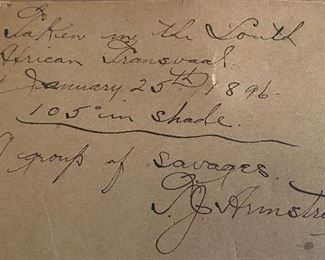 Taken in the South
African Transvaal.
January 25th 1896.
105° in shade.
group of savages.
T.J. Armstr